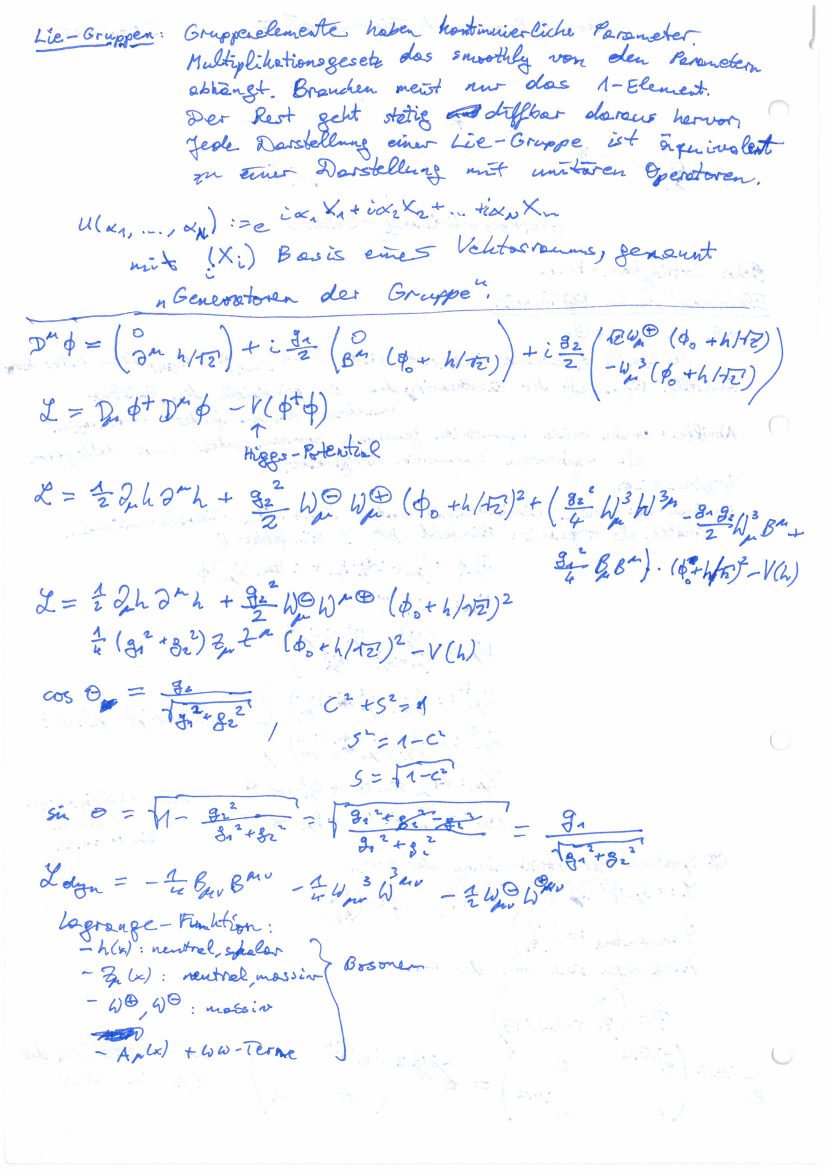 Lie-Gruppen: Gruppenelemente haben kontinuierliche Parameter.
Multiplikationsgesetz das smoothly von den Parametern
abhängt. Brauchen meist nur das 1-Element.
Der Rest geht stetig diffbar daraus hervor.
Jede Darstellung einer Lie-Gruppe ist äquivalent
zu einer Darstellung mit unitären Operatoren.
U(α₁, ..., α_N) := e^{iα₁X₁ + iα₂X₂ + ... + iα_N X_n}
mit (X_i)_i Basis eines Vektorraums, genannt
„Generatoren der Gruppe“.
D^μ ϕ = (0 ; ∂^μ h/√2) + i g₁/2 (0 ; B^μ (ϕ₀ + h/√2)) + i g₂/2 (√2 W_μ^⊕ (ϕ₀ + h/√2) ; -W_μ^3 (ϕ₀ + h/√2))
ℒ = D_μ ϕ^† D^μ ϕ - V(ϕ^† ϕ)
↑
Higgs-Potential
ℒ = 1/2 ∂_μ h ∂^μ h + g₂²/2 W_μ^⊖ W_μ^⊕ (ϕ₀ + h/√2)² + (g₂²/4 W_μ^3 W^{3μ} - g₁g₂/2 W_μ^3 B^μ +
g₁²/4 B_μ B^μ) · (ϕ₀ + h/√2)² - V(h)
ℒ = 1/2 ∂_μ h ∂^μ h + g₂²/2 W_μ^⊖ W^{μ⊕} (ϕ₀ + h/√2)²
1/4 (g₁² + g₂²) Z_μ Z^μ (ϕ₀ + h/√2)² - V(h)
cos θ = g₂/√(g₁² + g₂²) , c² + s² = 1
s² = 1 - c²
s = √(1 - c²)
sin θ = √(1 - g₂²/(g₁² + g₂²)) = √((g₁² + g₂² - g₂²)/(g₁² + g₂²)) = g₁/√(g₁² + g₂²)
ℒ_dyn = -1/4 B_μν B^μν - 1/4 W_μν^3 W^{3μν} - 1/2 W_μν^⊖ W^{⊕μν}
Lagrange-Funktion:
- h(x): neutral, skalar
- Z_μ(x): neutral, massiv } Bosonen
- W^⊕, W^⊖: massiv
- A_μ(x) + WW-Terme